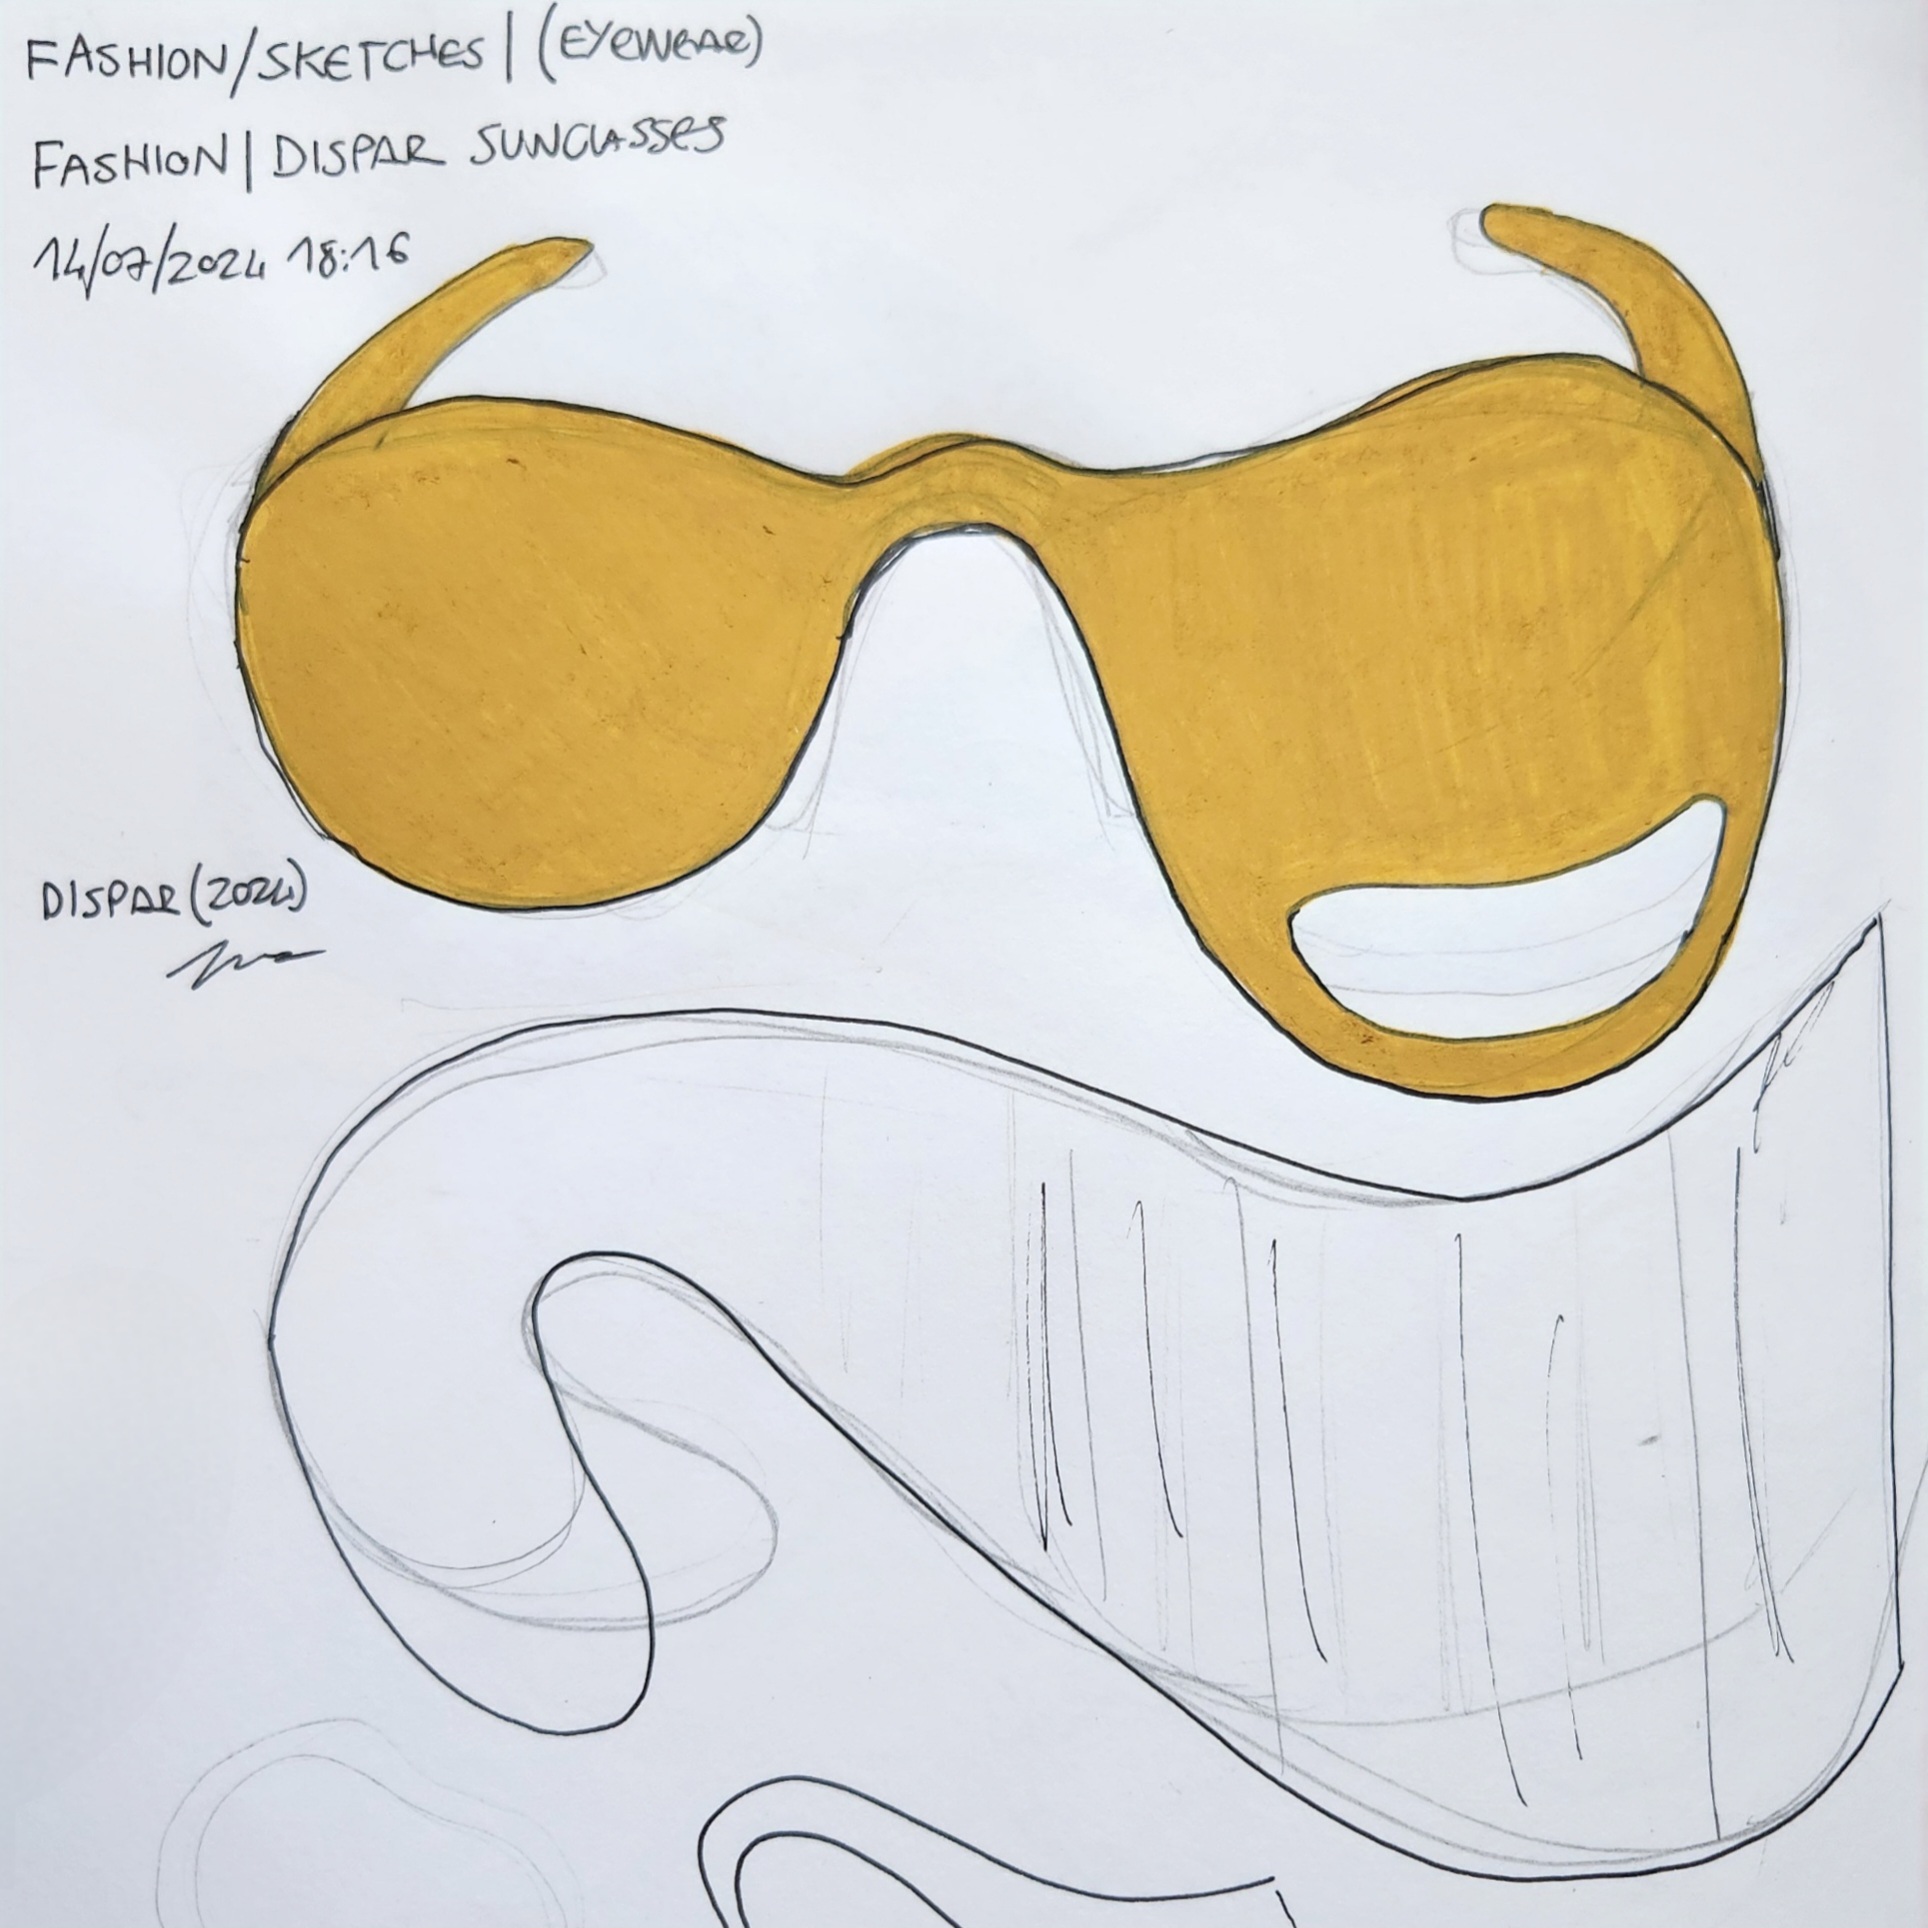 FASHION/SKETCHES | (EYEWEAR)
FASHION | DISPAR SUNGLASSES
14/07/2024 18:16
DISPAR (2024)